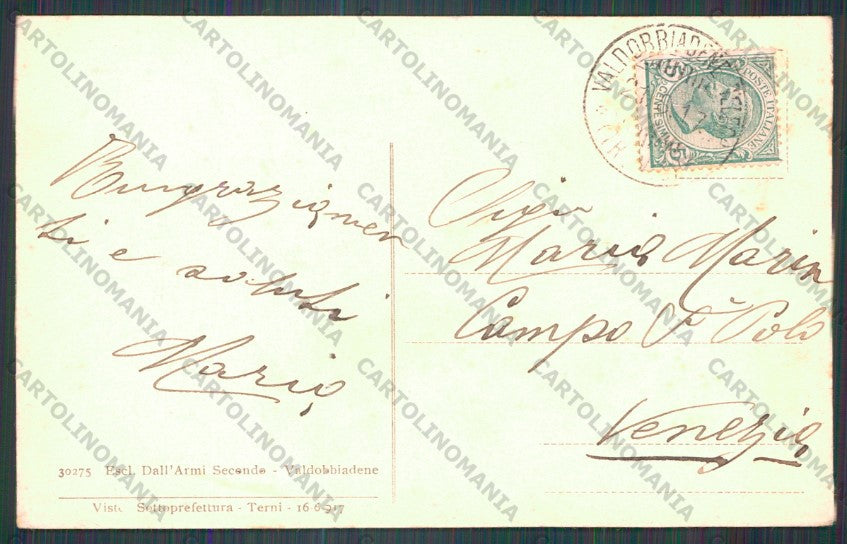 VALDOBBIADENE
POSTE ITALIANE
Ringraziamen
ti e saluti
Mario
Sig.
Mario Marin
Campo S. Polo
Venezia
30275 Escl. Dall'Armi Secondo - Valdobbiadene
Visto Sottoprefettura - Terni - 16 6 917
CARTOLINOMANIA